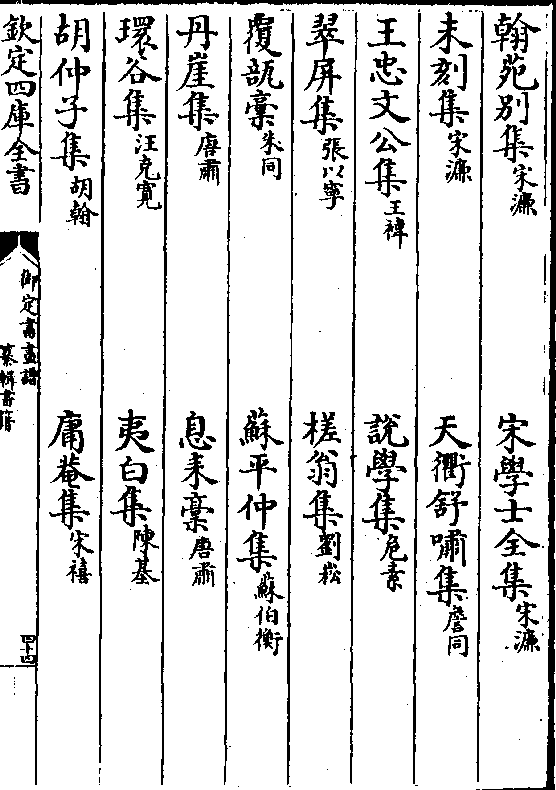 翰苑别集宋濂　宋學士全集宋濂
未刻集宋濂　天衢舒嘯集詹同
王忠文公集王褘　說學集危素
翠屏集張以寧　槎翁集劉崧
覆瓿稾朱同　蘇平仲集蘇伯衡
丹崖集唐肅　息耒稾唐肅
環谷集汪克寛　夷白集陳基
胡仲子集胡翰　庸菴集宋禧
欽定四庫全書
御定書畫譜
纂輯書籍
四十四